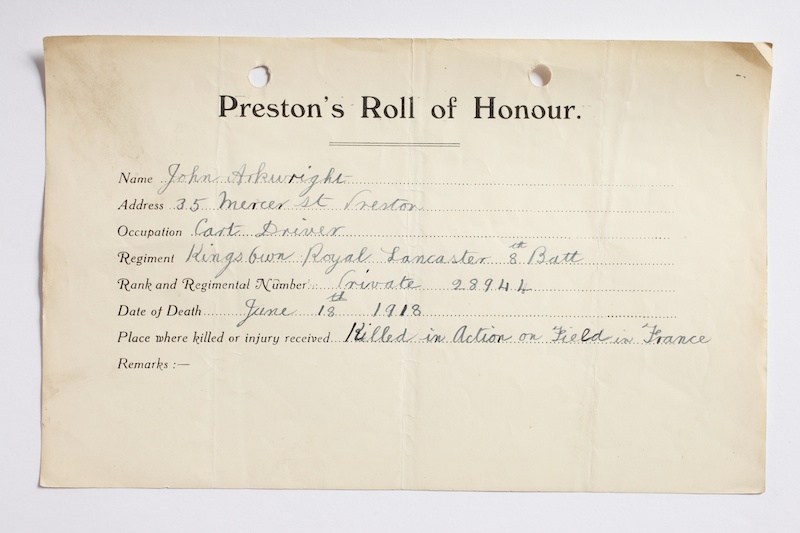 Preston's Roll of Honour.
Name John Arkwright
Address 35 Mercer St Preston
Occupation Cart Driver
Regiment Kings Own Royal Lancaster 8th Batt
Rank and Regimental Number Private 28944
Date of Death June 18th 1918
Place where killed or injury received Killed in Action on Field in France
Remarks :—